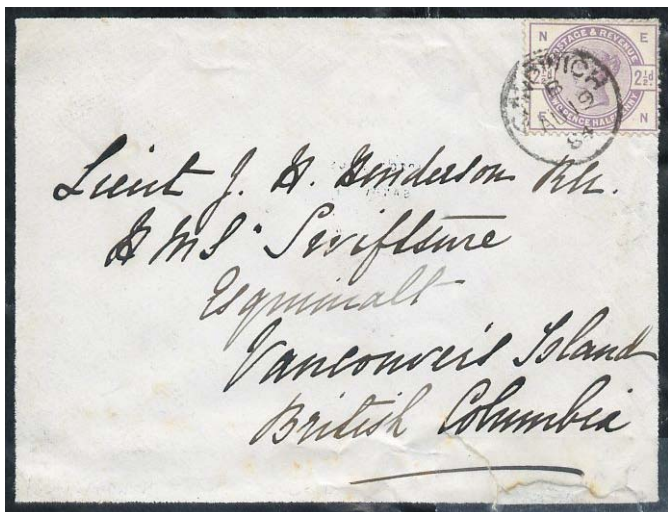 N E
POSTAGE & REVENUE
2½d 2½d
TWO PENCE HALFPENNY
E N
B
AU 16
84
Lieut J. H. Henderson RN.
H M S "Swiftsure
Esquimalt
Vancouveis Island
British Columbia